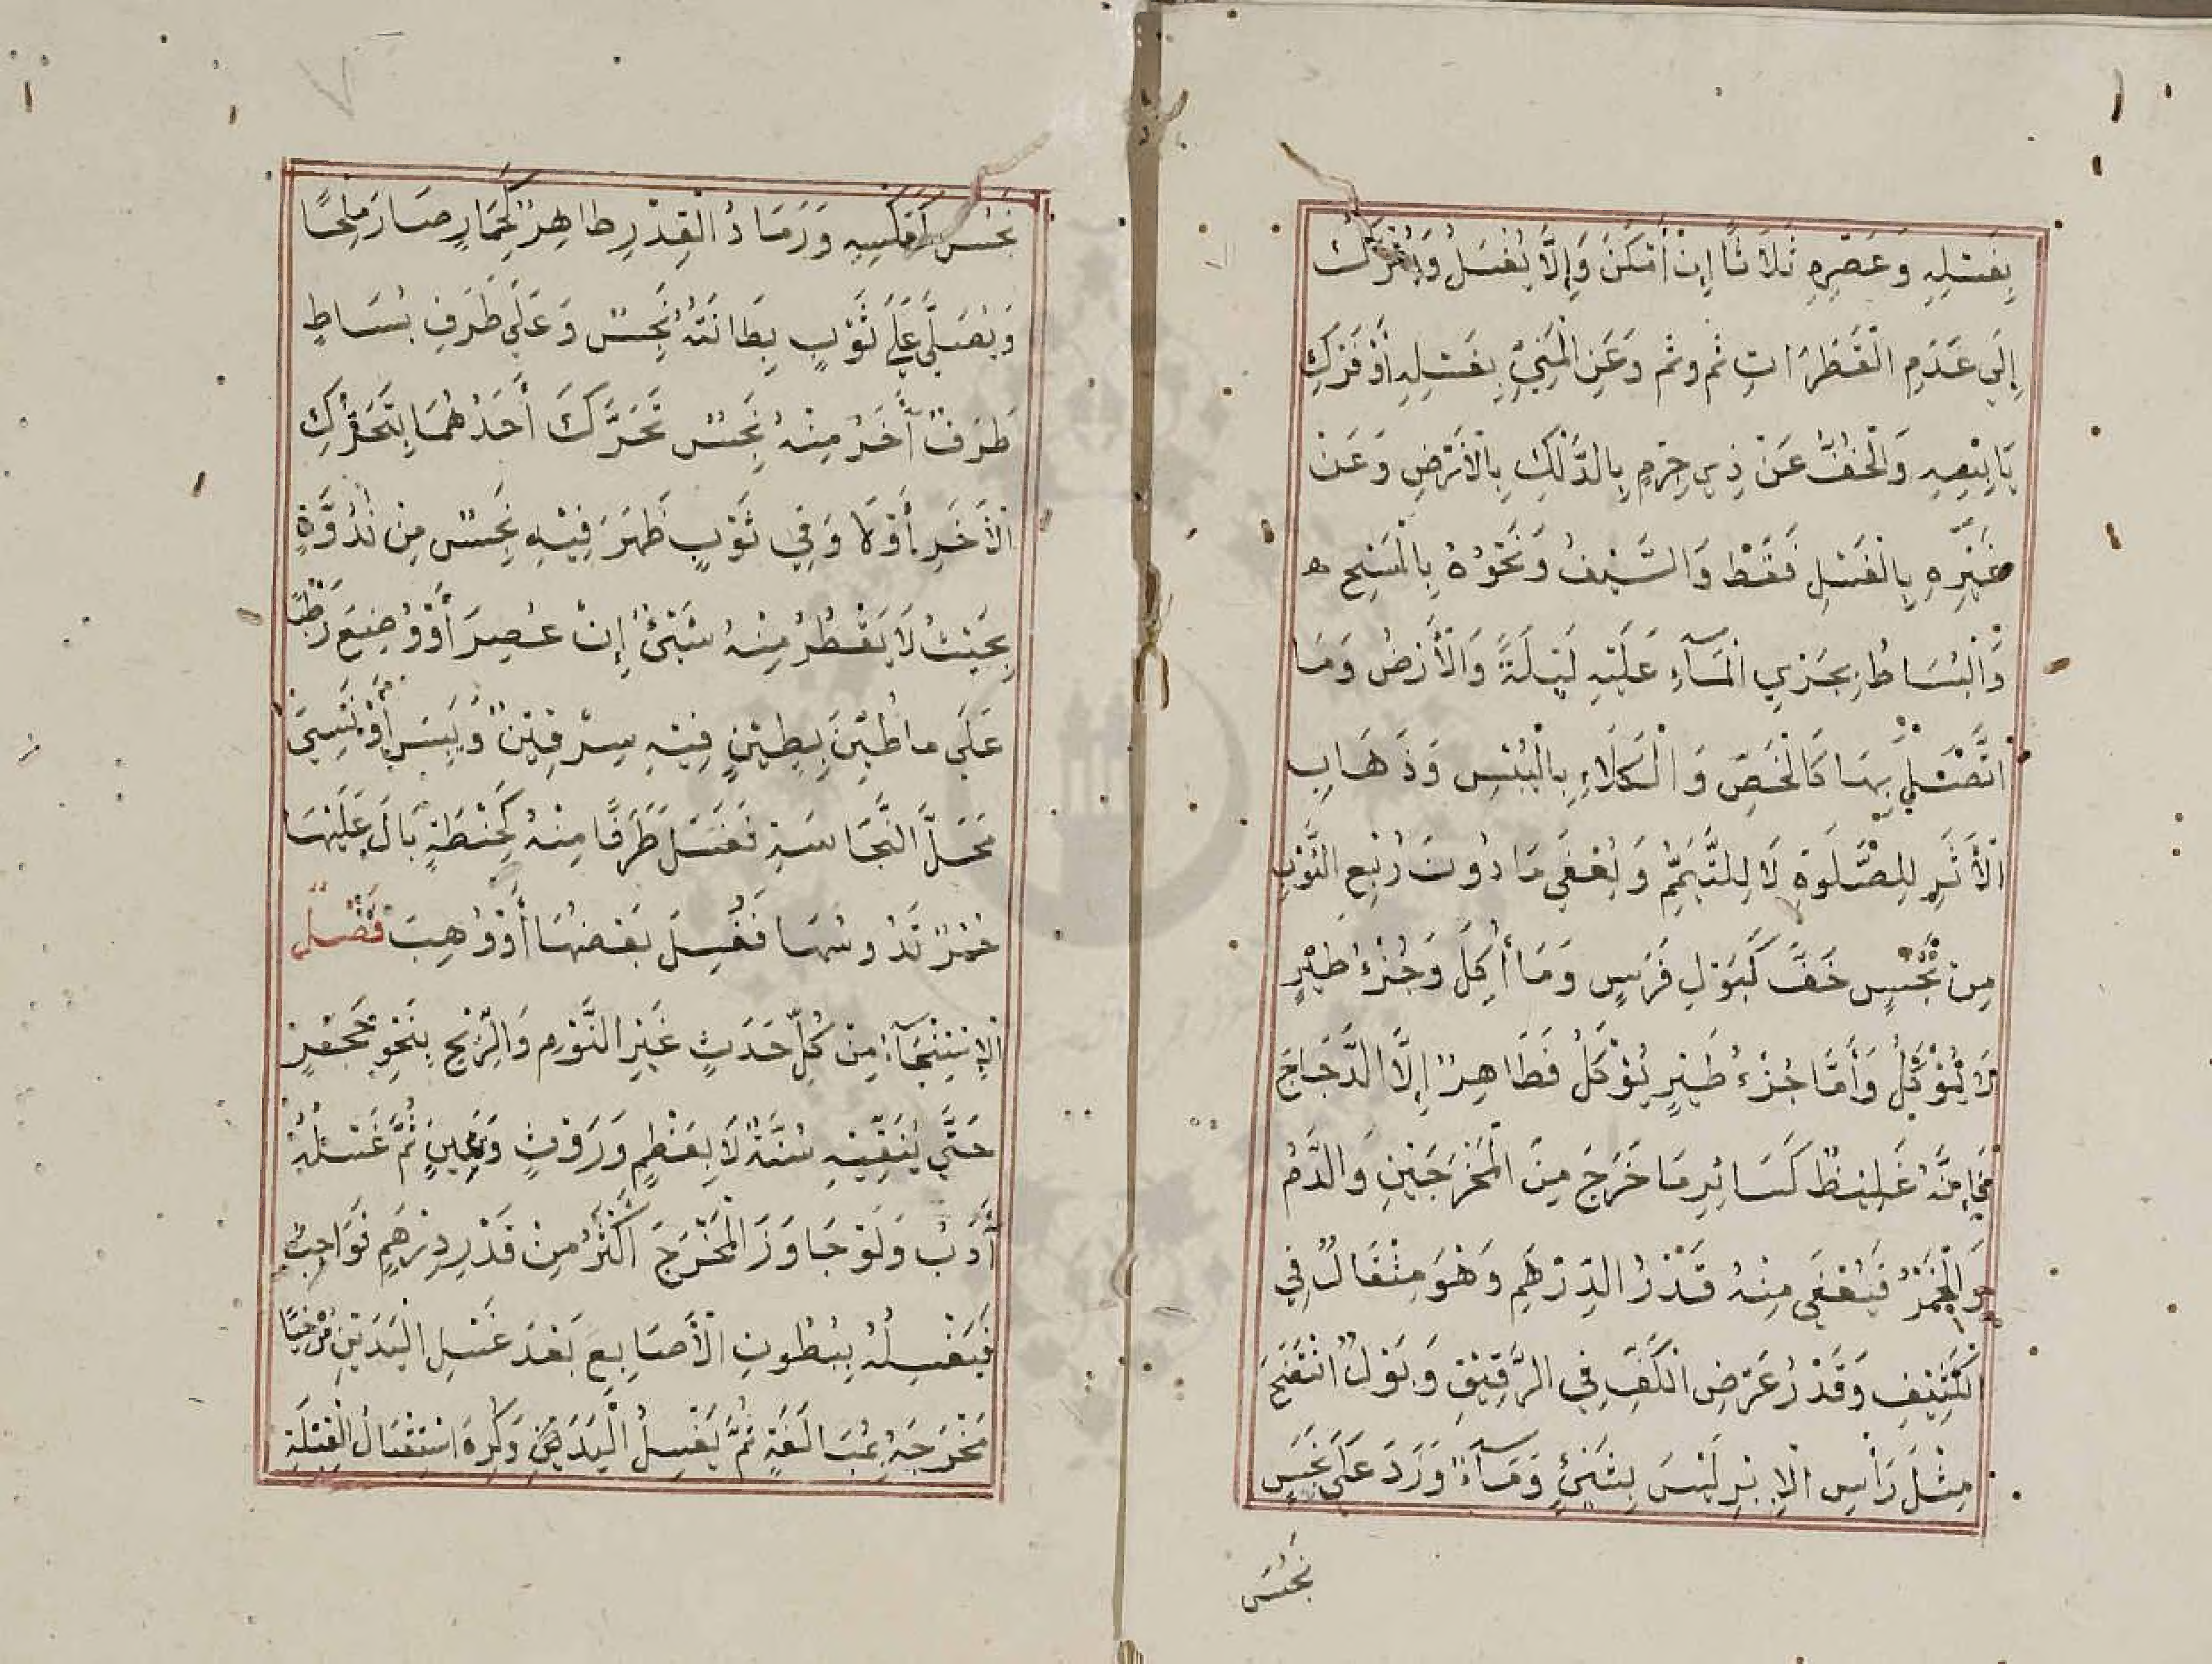 بِغَسْلِهِ وَعَصْرِهِ ثَلَاثًا إِنْ أَمْكَنَ وَإِلَّا يُغْسَلُ وَيُتْرَكُ
إِلَى عَدَمِ الْقَطَرَاتِ ثم وثم وَعَنِ الْمَنِيِّ بِغَسْلِهِ أَوْ فَرْكِ
يَابِسِهِ وَالْخُفُّ عَنْ ذِي جِرْمٍ بِالدَّلْكِ بِالْأَرْضِ وَعَنْ
غَيْرِهِ بِالْغَسْلِ فَقَطْ وَالسَّيْفُ وَنَحْوُهُ بِالْمَسْحِ ه
وَالْبُسَاطُ بِجَرْيِ الْمَآءِ عَلَيْهِ لَيْلَةً وَالْأَرْضُ وَمَا
اتَّصَلَ بِهَا كَالْخُصِّ وَالْكَلَاءِ بِالْيُبْسِ وَذَهَابِ
الْأَثَرِ لِلصَّلَوةِ لَا لِلتَّيَمُّمِ وَيُعْفَى مَا دُونَ رُبْعِ الثَّوْبِ
مِنْ نَجْسٍ خَفَّ كَبَوْلِ فَرَسٍ وَمَا أُكِلَ وَخُرْءُ طَيْرٍ
لَا يُؤْكَلُ وَأَمَّا خُرْءُ طَيْرٍ يُؤْكَلُ فَطَاهِرٌ إِلَّا الدَّجَاجَ
فَإِنَّهُ غَلِيظٌ كَسَائِرِ مَا خَرَجَ مِنَ الْمَخْرَجَيْنِ وَالدَّمُ
وَالْخَمْرُ فَيُعْفَى مِنْهُ قَدْرُ الدِّرْهَمِ وَهْوَ مِثْقَالٌ فِي
الْكَثِيفِ وَقَدْرُ عَرْضِ الْكَفِّ فِي الرَّقِيقِ وَبَوْلٌ انْتَضَحَ
مِثْلَ رَأْسِ الْإِبْرِ لَيْسَ بِشَيْءٍ وَمَآءٌ وَرَدَ عَلَى نَجَسٍ
نَجُسَ
نَجُسَ كَعَكْسِهِ وَرَمَادُ الْقِدْرِ طَاهِرٌ كَحِمَارٍ صَارَ مِلْحًا
وَيُصَلَّى عَلَى ثَوْبٍ بِطَانَتُهُ نَجِسٌ وَعَلَى طَرَفِ بُسَاطٍ
طَرَفٌ أَخَرُ مِنْهُ نَجِسٌ تَحَرَّكَ أَحَدُهُمَا بِتَحَرُّكِ
الْأَخَرِ أَوْ لَا وَفِي ثَوْبٍ ظَهَرَ فِيْهِ نَجِسٌ مِنْ نُدُوَّةٍ
بِحَيْثُ لَا يَقْطُرُ مِنْهُ شَيْئٌ إِنْ عُصِرَ أَوْ وُضِعَ رَطْبًا
عَلَى مَا طُيِّنَ بِطِيْنٍ فِيْهِ سِرْقِيْنٌ وَيَبِسَ أَوْ نَسِيَ
مَحَلَّ النَّجَاسَةِ فَغَسَلَ طَرَفًا مِنْهُ كَحِنْطَةٍ بَالَ عَلَيْهَا
حُمُرٌ تَدُوسُهَا فَغُسِلَ بَعْضُهَا أَوْ وُهِبَ فَصْلٌ
الْإِسْتِنْجَآءُ مِنْ كُلِّ حَدَثٍ غَيْرِ النَّوْمِ وَالرِّيْحِ بِنَحْوِ حَجَرٍ
حَتَّى يُنَقِّيَهُ سُنَّةٌ لَا بِعَظْمٍ وَرَوْثٍ وَيَمِينٍ ثُمَّ غَسْلُهُ
أَدَبٌ وَلَوْ جَاوَزَ الْمَخْرَجَ أَكْثَرُ مِنْ قَدْرِ دِرْهَمٍ فَوَاجِبٌ
فَيَغْسِلُهُ بِبُطُونِ الْأَصَابِعِ بَعْدَ غَسْلِ الْيَدَيْنِ مُرْخِيًا
مَخْرَجَهُ بِمُبَالَغَةٍ ثُمَّ يَغْسِلُ الْيَدَيْنِ وَكُرِهَ اسْتِقْبَالُ الْقِبْلَةِ